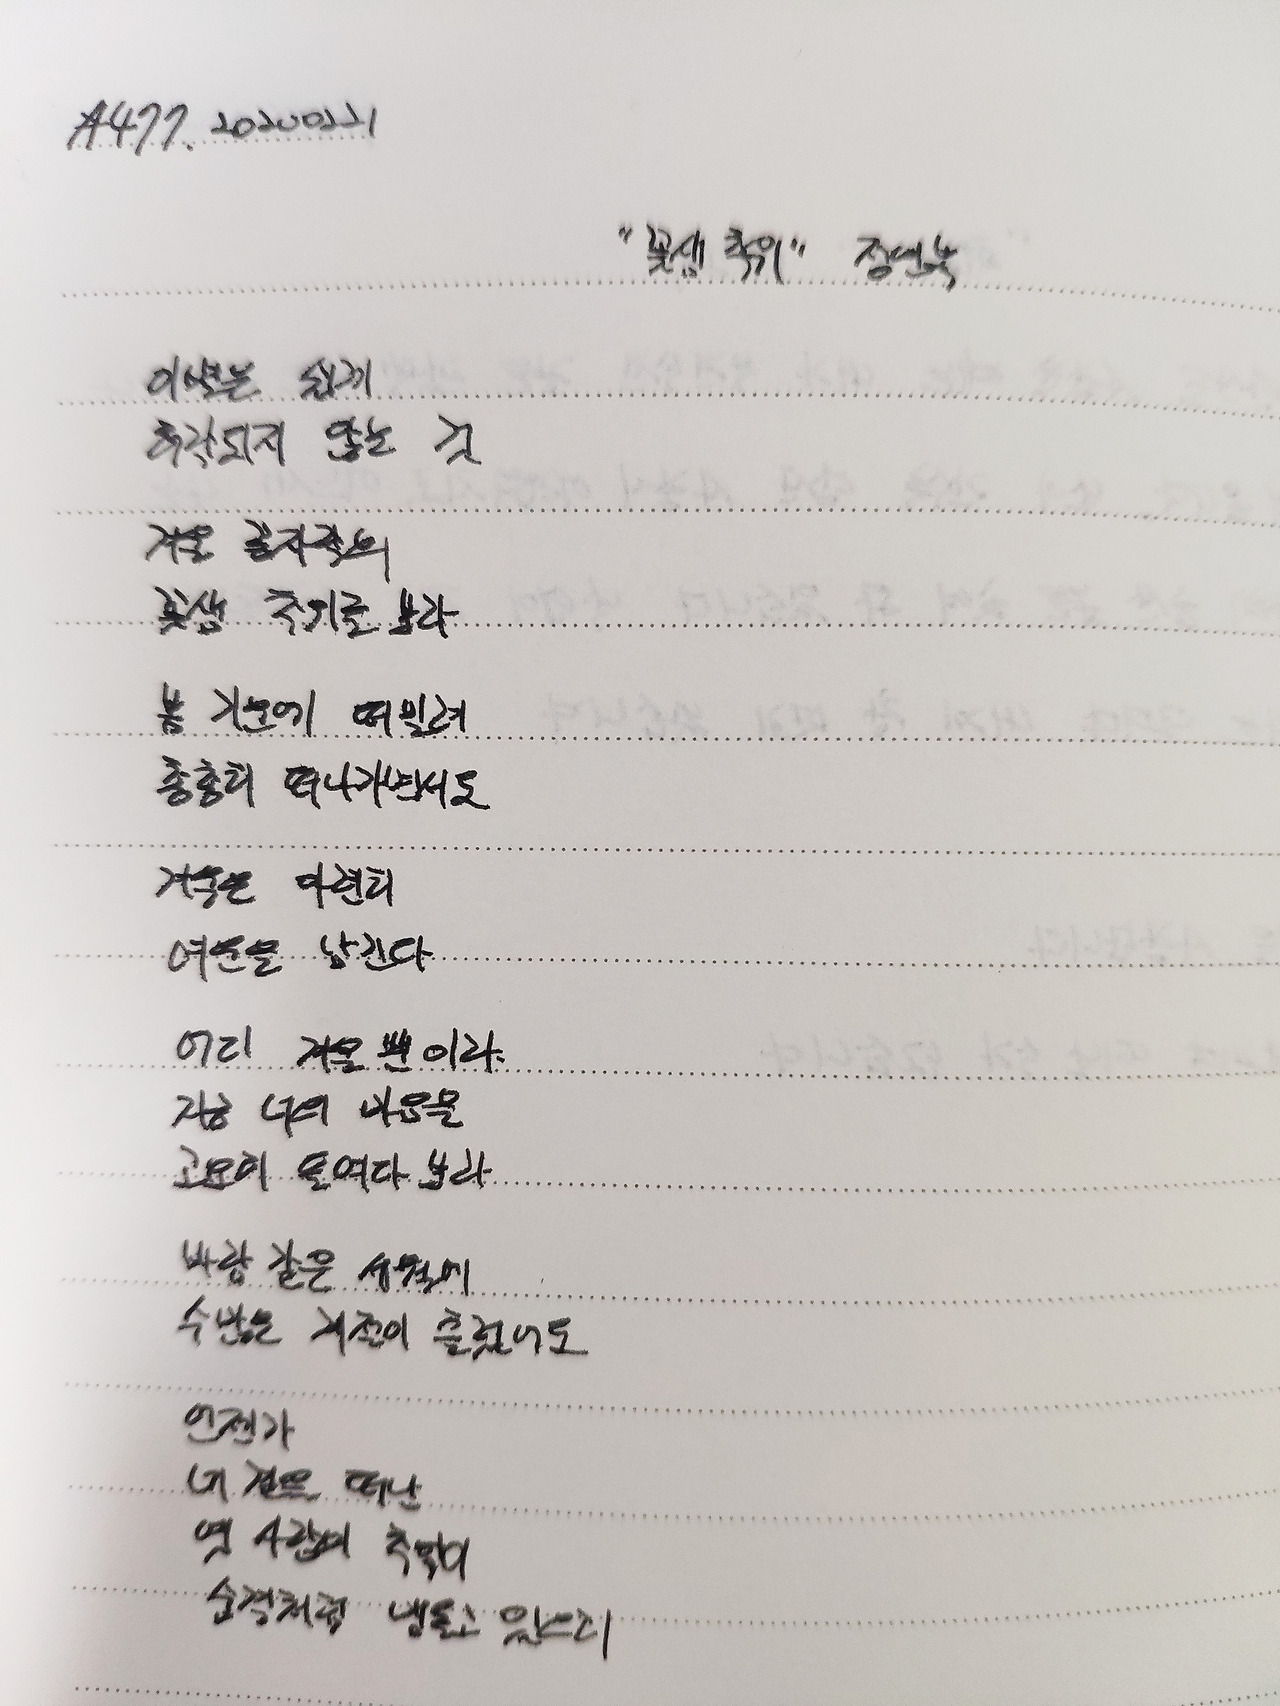 A477. 20200221
"꽃샘 추위" 정연복
이별은 쉽게
허락되지 않는 것
겨울 끝자락의
꽃샘 추위를 보라
봄 기운에 떠밀려
총총히 떠나가면서도
겨울은 아련히
여운을 남긴다
어디 겨울 뿐이랴
지금 너의 마음을
고요히 들여다 보라
바람 같은 세월에
수많은 계절이 흘렀어도
언젠가
네 곁을 떠난
옛 사랑의 추억이
숨결처럼 맴돌고 있으리